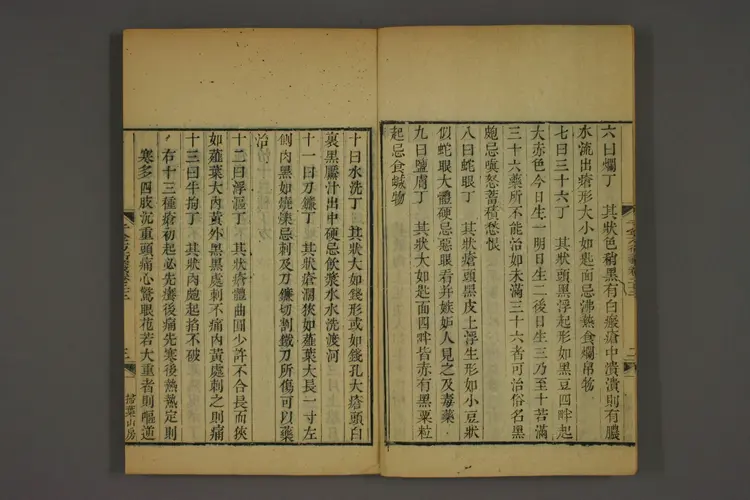 六曰爛丁　其狀色稍黑有白瘢瘡中潰潰則有膿
水流出瘡形大小如匙面忌沸熱食爛帛物
七曰三十六丁　其狀頭黑浮起形如黑豆四畔起
大赤色今日生一明日生二後日生三乃至十若滿
三十六藥所不能治如未滿三十六者可治俗名黑
皰忌嗔怒蓄積愁恨
八曰蛇眼丁　其狀瘡頭黑皮上浮生形如小豆狀
似蛇眼大體硬忌惡眼看并嫉妒人見之及毒藥
九曰鹽膚丁　其狀大如匙面四畔皆赤有黑粟粒
起忌食鹹物
十曰水洗丁　其狀大如錢形或如錢孔大瘡頭白
裏黑黶汁出中硬忌飲漿水水洗渡河
十一曰刀鐮丁　其狀瘡濶狹如薤葉大長一寸左
側肉黑如燒爍忌刺及刀鐮切割鐵刀所傷可以藥
治
十二曰浮漚丁　其狀瘡體曲圓少許不合長而狹
如薤葉大內黃外黑黑處刺不痛內黃處刺之則痛
十三曰牛拘丁　其狀肉皰起掐不破
右十三種瘡初起必先癢後痛先寒後熱熱定則
寒多四肢沉重頭痛心驚眼花若大重者則嘔逆
二
三
掃葉山房